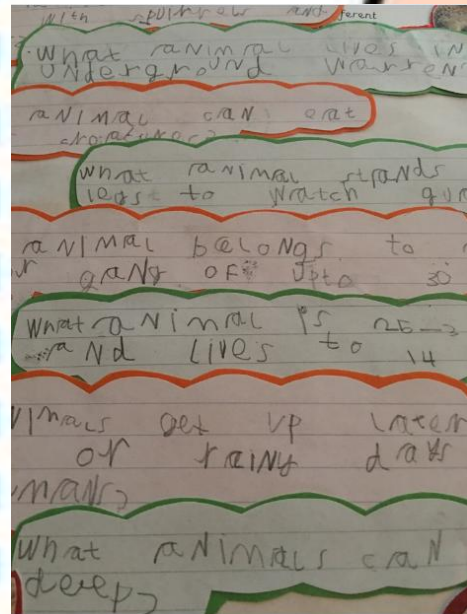 with squirrels and
ferent
What animal lives in
underground warren
animal can eat
what animal stands
legs to watch gua
animal belongs to
gang of upto 30
What animal is 25-3
and lives to 14
nimals get up later
or rainy days
mans?
What animals can
deep?